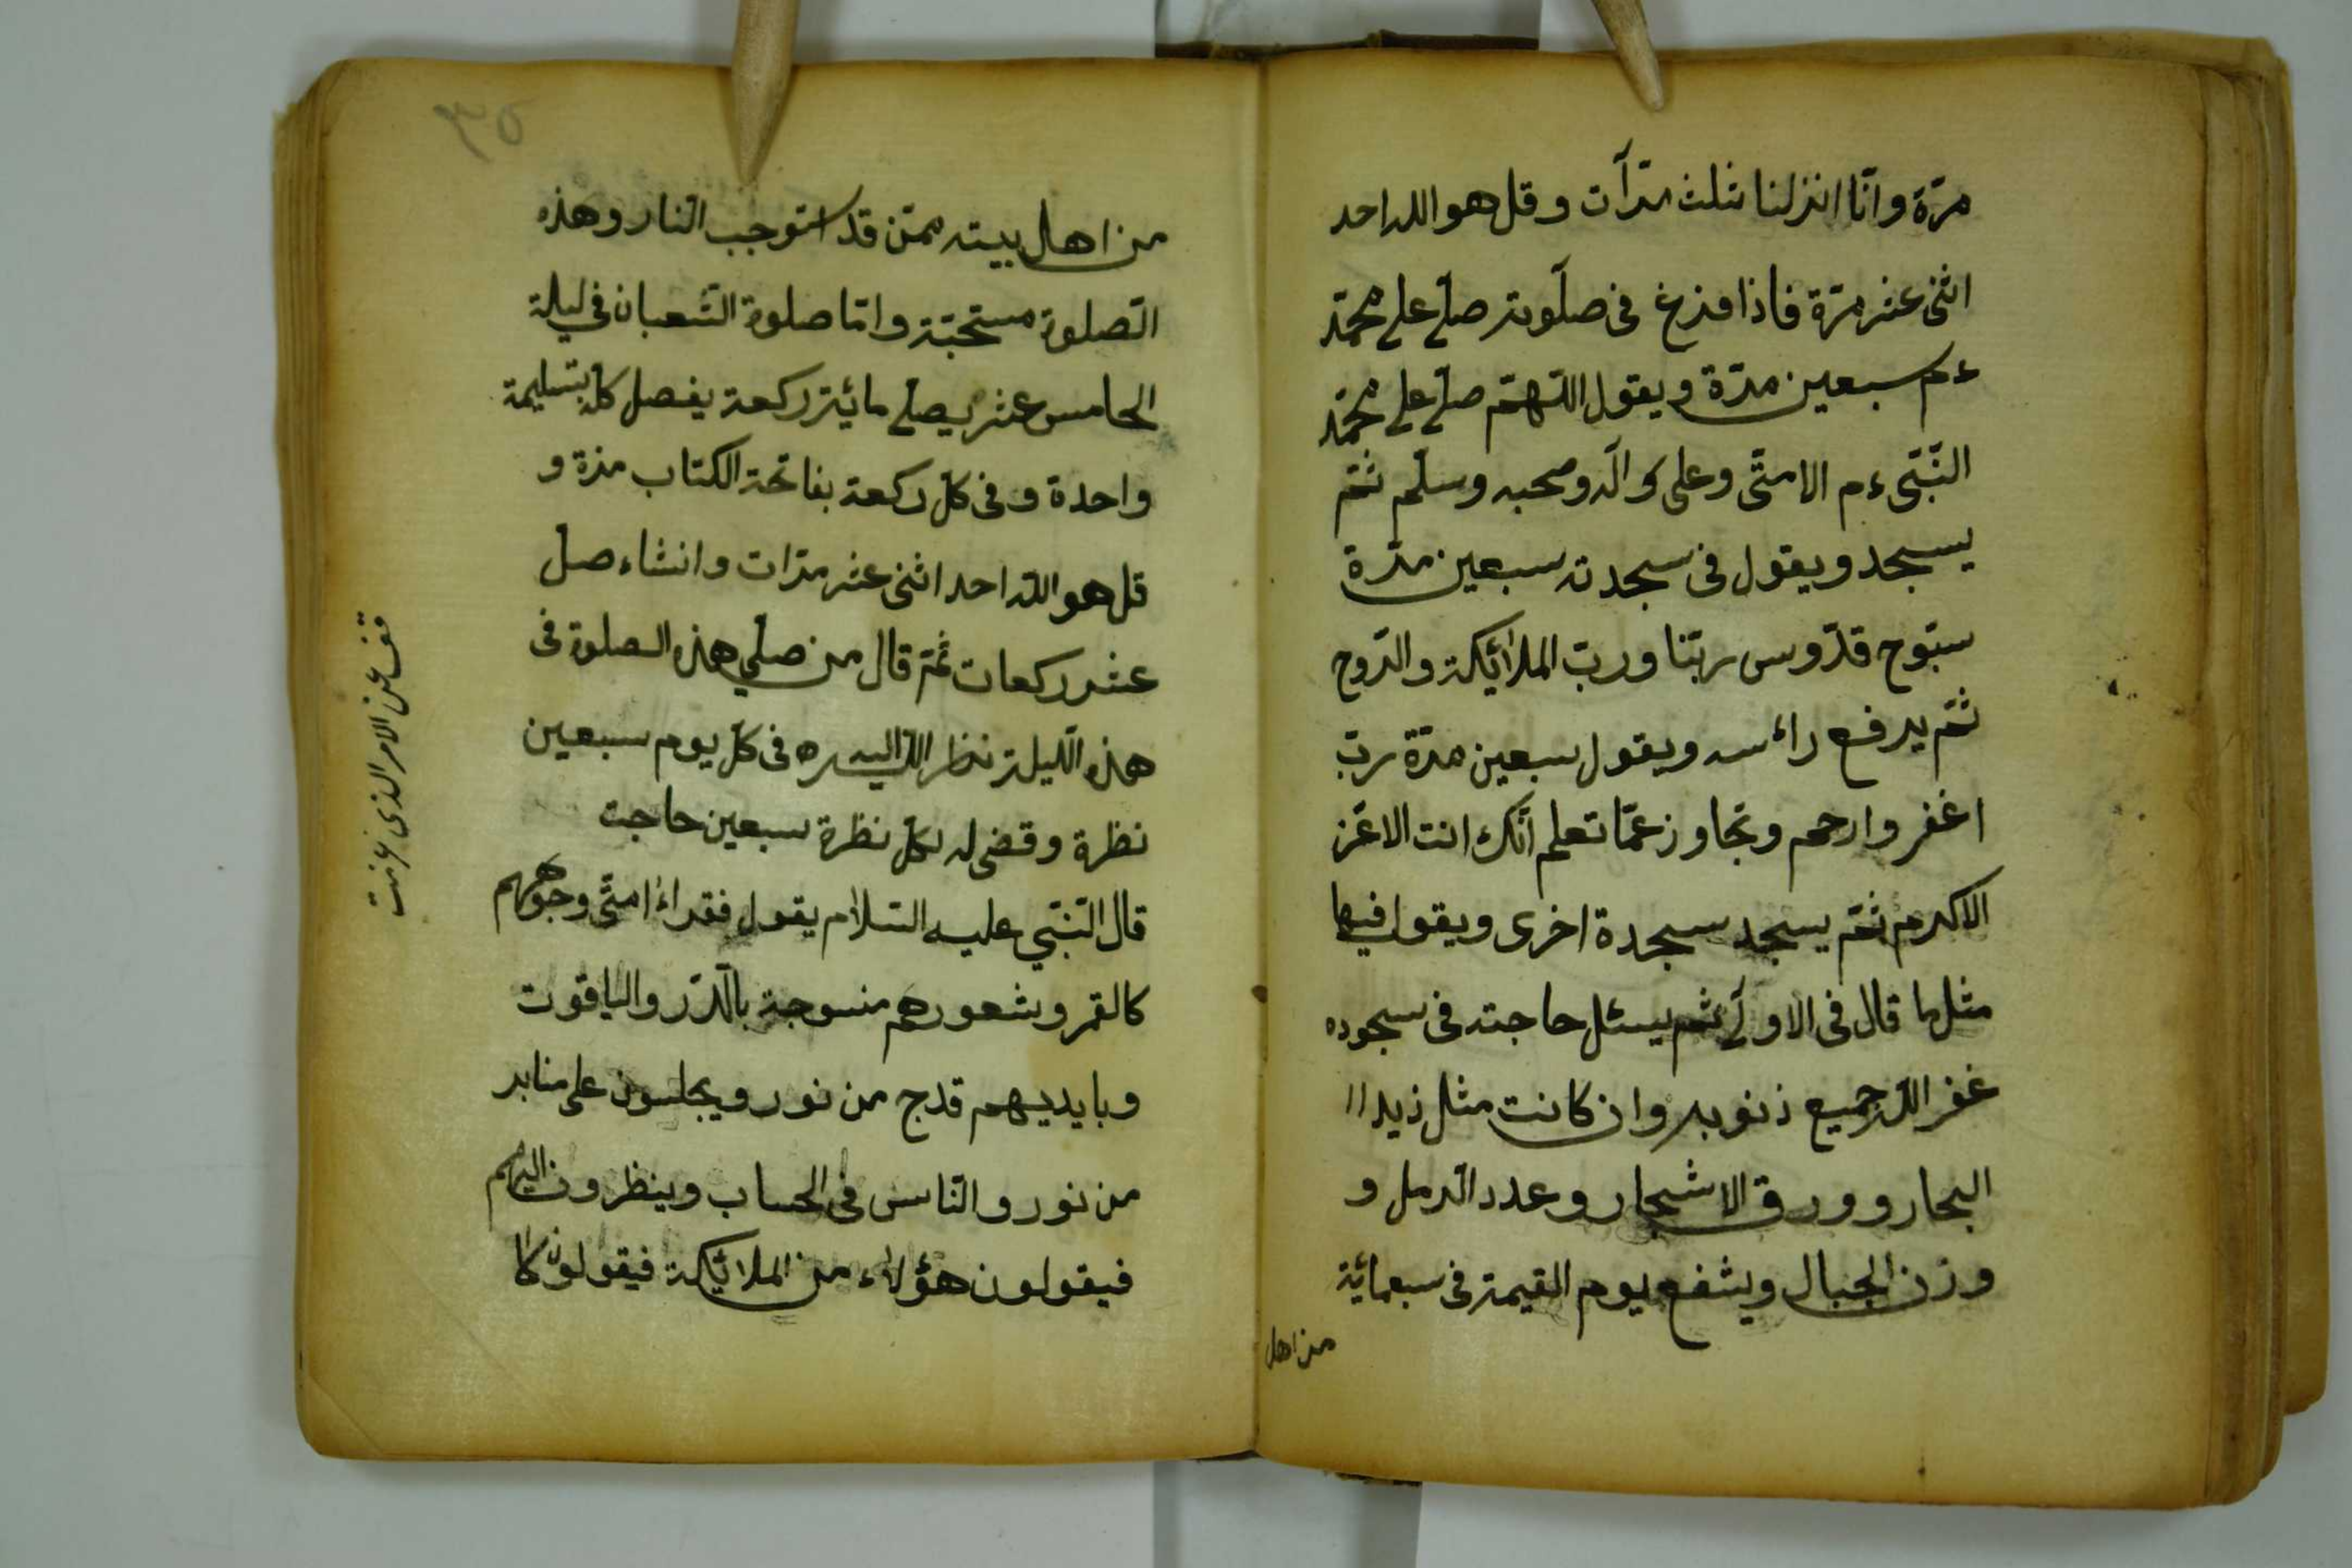 مرّة وانّا انزلنا ثلث مرّآت وقل هو الله احد
اثنى عشر مرّة فاذا فرغ فى صلوته صلّى على محمّد
ءم سبعين مرّة ويقول اللّهمّ صلّى على محمّد
النّبىّ ءم الامّىّ وعلى آله وصحبه وسلّم ثمّ
يسجد ويقول فى سجدته سبعين مرّة
سبّوح قدّوس ربّنا وربّ الملائكة والرّوح
ثمّ يرفع رائسه ويقول سبعين مرّة ربّ
اغفر وارحم وتجاوز عمّا تعلم انّك انت الاعزّ
الاكرم ثمّ يسجد سجدة اخرى ويقول فيها
مثل ما قال فى الاولى ثم يسئل حاجته فى سجوده
غفر الله جميع ذنوبه وان كانت مثل زبد اا
البحار وورق الاشجار وعدد الرمل و
وزن الجبال ويشفع يوم القيمة فى سبعمائة
من اهل
٣٥
من اهل بيته ممّن قد استوجب النار وهذه
الصّلوة مستحبّة وامّا صلوة الشّعبان فى ليلة
الخامس عشر يصلّى مائية ركعة يفصل كلّ بتسليمة
واحدة وفى كلّ ركعة بفاتحة الكتاب مرة و
قل هو الله احد اثنى عشر مرّات وانشاء صلّ
عشر ركعات ثمّ قال من صلّى هذه الصلوة فى
هذه اللّيلة نظر الله اليه فى كلّ يوم سبعين
نظرة وقضى له بكلّ نظرة سبعين حاجت
قال النّبىّ عليه السّلام يقول فقراء امّتى وجوههم
كالقمر وشعورهم منسوجة بالدّر والياقوت
وبايديهم قدح من نور ويجلسون على منابر
من نور والنّاس فى الحساب وينظرون اليهم
فيقولون هؤلاء من الملائكة فيقولون كا
قف عن الامر الذى عزمت